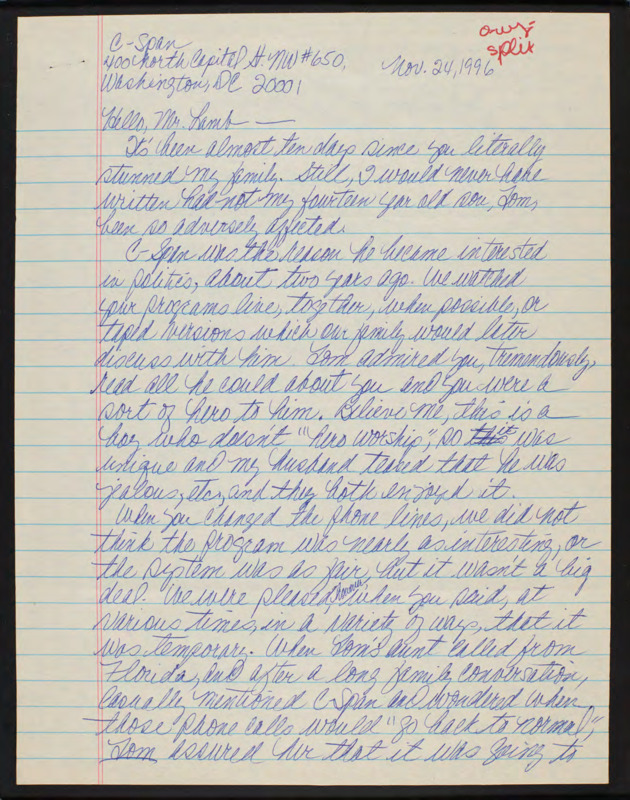 any-
split
C-Span
400 North Capitol St. NW #650,
Nov. 24, 1996
Washington, DC 20001
Hello, Mr. Lamb —
It's been almost ten days since you literally
stunned my family. Still, I would never have
written had not my fourteen year old son, Tom,
been so adversely affected.
C-Span was the reason he became interested
in politics, about two years ago. We watched
your programs live, together, when possible, or
taped versions which our family would later
discuss with him. Tom admired you, tremendously,
read all he could about you and you were a
sort of hero to him. Believe me, this is a
boy who doesn't "hero worship", so it was
unique and my husband teased that he was
jealous, etc, and they both enjoyed it.
When you changed the phone lines, we did not
think the program was nearly as interesting, or
the system was as fair, but it wasn't a big
deal. We were pleased, however, when you said, at
various times, in a variety of ways, that it
was temporary. When Tom's aunt called from
Florida, and after a long family conversation,
casually mentioned C-Span and wondered when
those phone calls would "go back to normal",
Tom assured her that it was going to